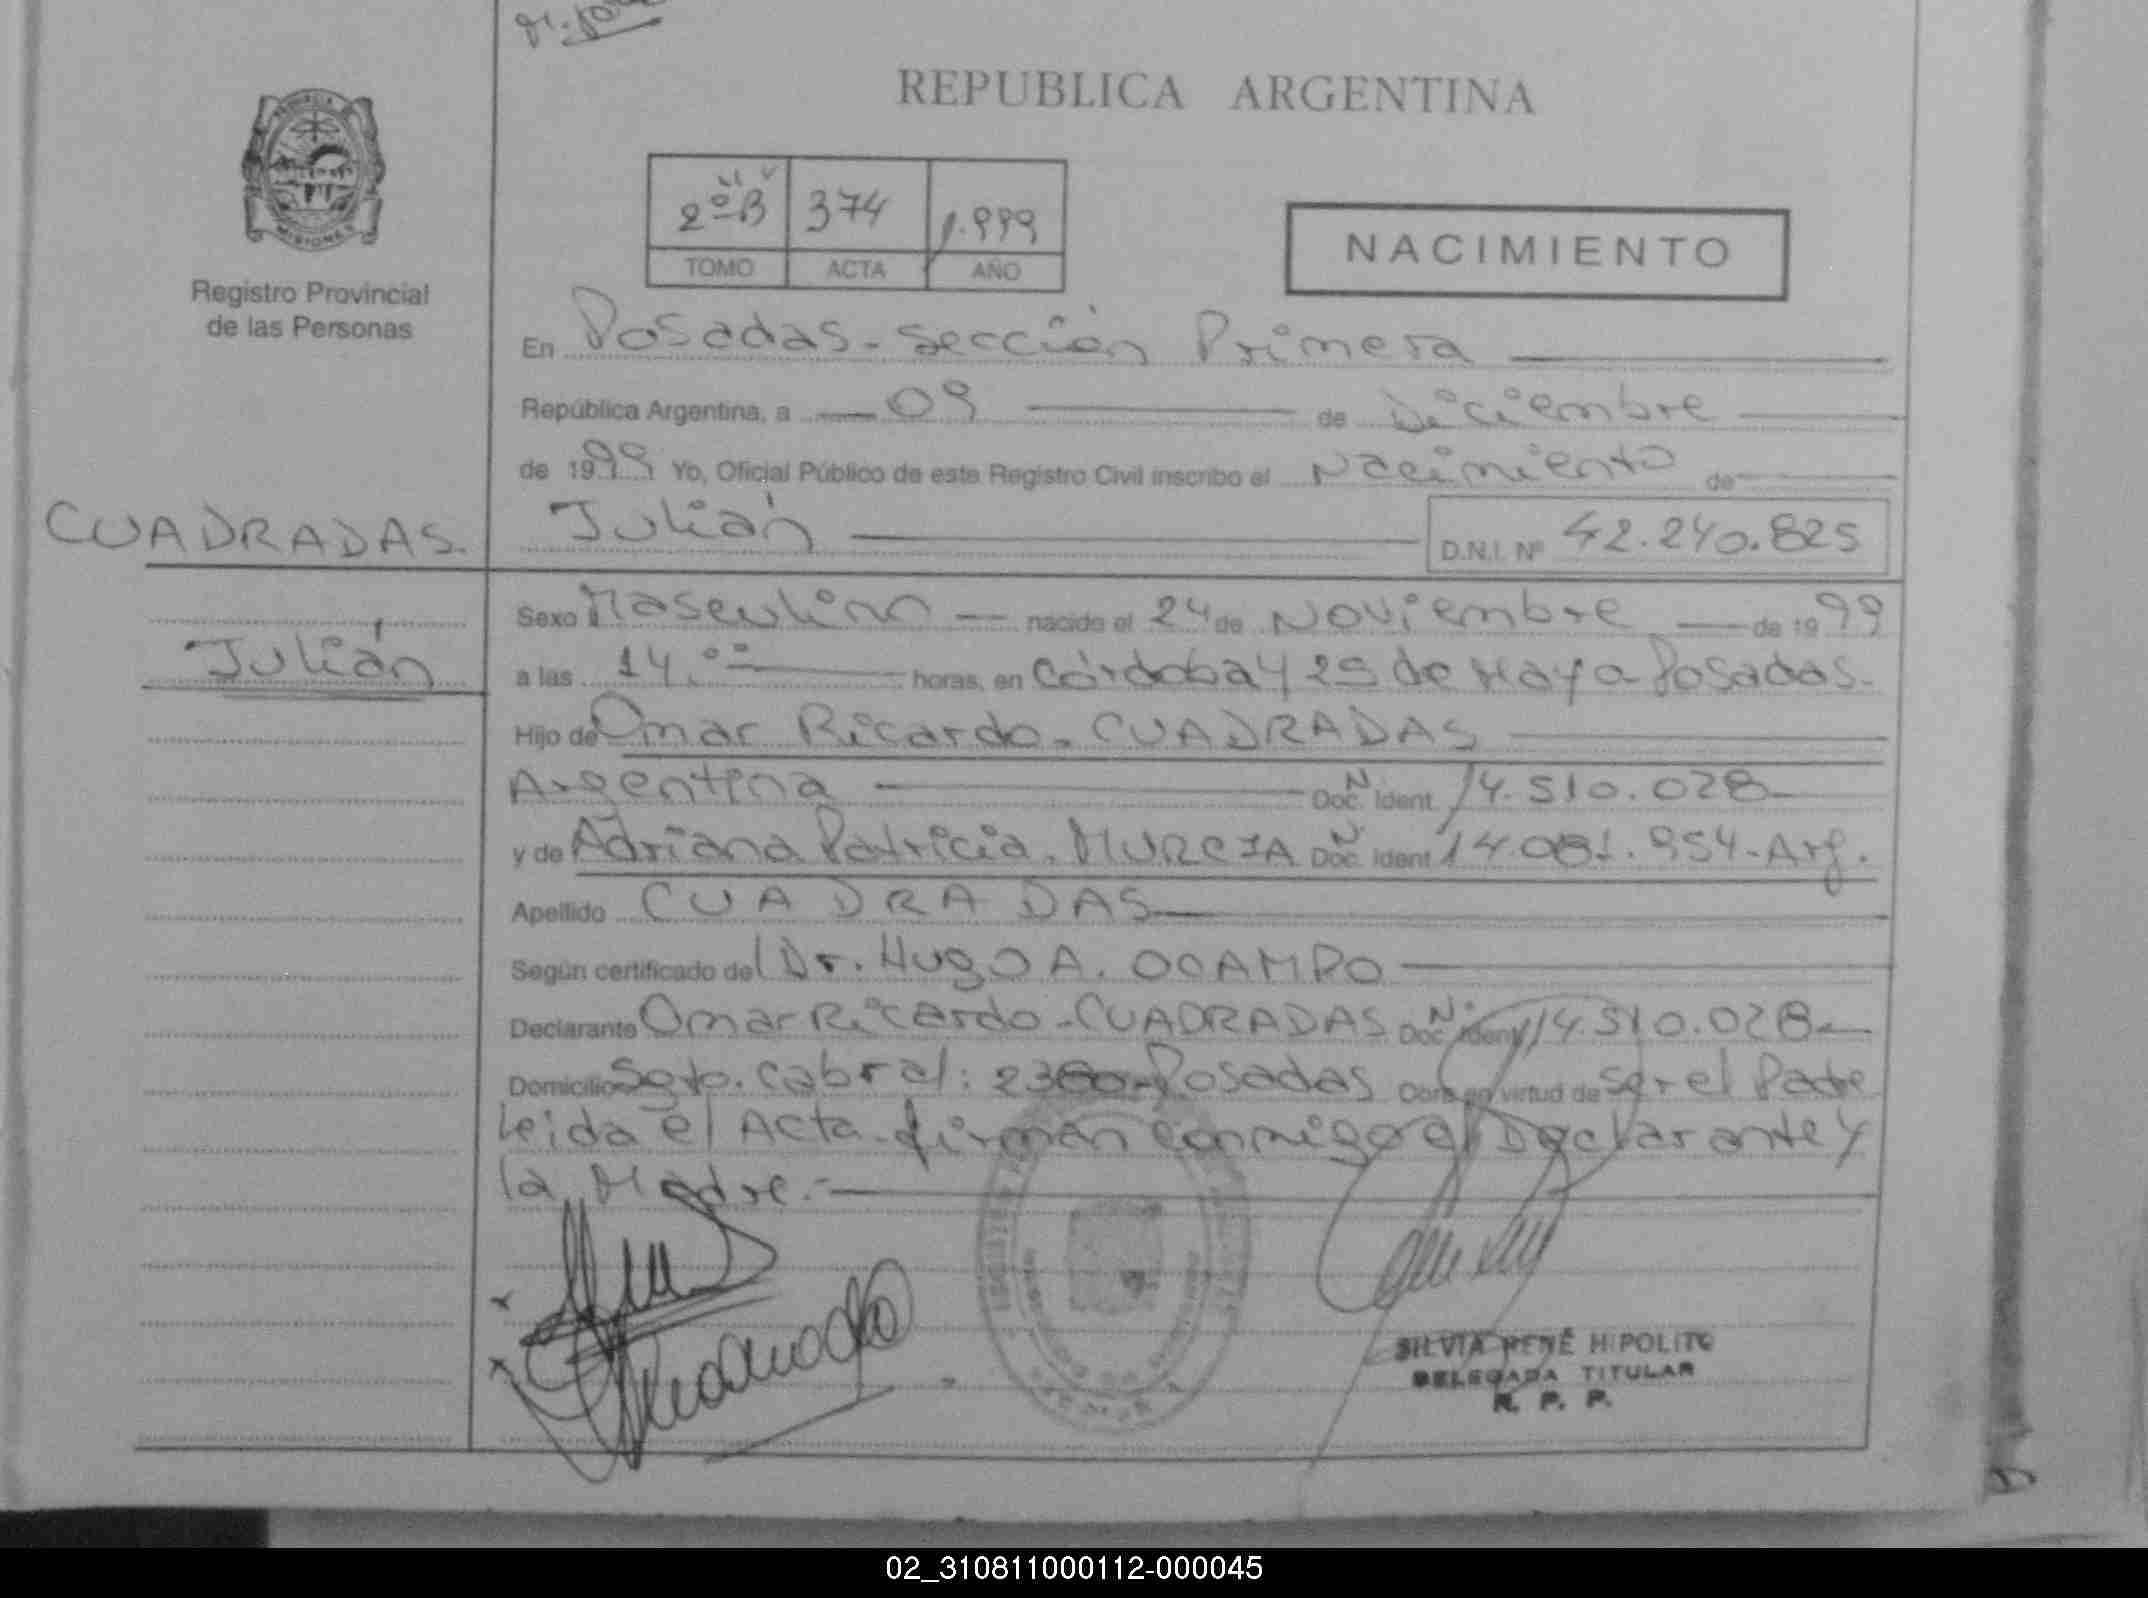 REPUBLICA ARGENTINA
PROVINCIA
MISIONES
Registro Provincial
de las Personas
2º"B" 374 1.999
TOMO ACTA AÑO
NACIMIENTO
En Posadas - Sección Primera
República Argentina, a 09 de Diciembre
de 1999 Yo, Oficial Público de este Registro Civil inscribo el Nacimiento de
CUADRADAS. Julián D.N.I. Nº 42.240.825
Sexo Masculino nacido el 24 de Noviembre de 1999
Julián
a las 14.00 horas, en Córdoba y 25 de Mayo Posadas.
Hijo de Omar Ricardo. CUADRADAS
Argentina Doc. N. Ident 14.510.028
y de Adriana Patricia. MURCIA Doc. N. Ident 14.081.954-Arg.
Apellido CUADRADAS
Según certificado del Dr. Hugo A. OCAMPO
Declarante Omar Ricardo - CUADRADAS Doc. N. Ident 14.510.028
Domicilio Sgto. Cabral: Posadas Obra en virtud de ser el Padre
Leida el Acta firman conmigo el Declarante y
la Madre.-
SILVIA RENÉ HIPOLITO
DELEGADA TITULAR
R. P. P.
02_310811000112-000045